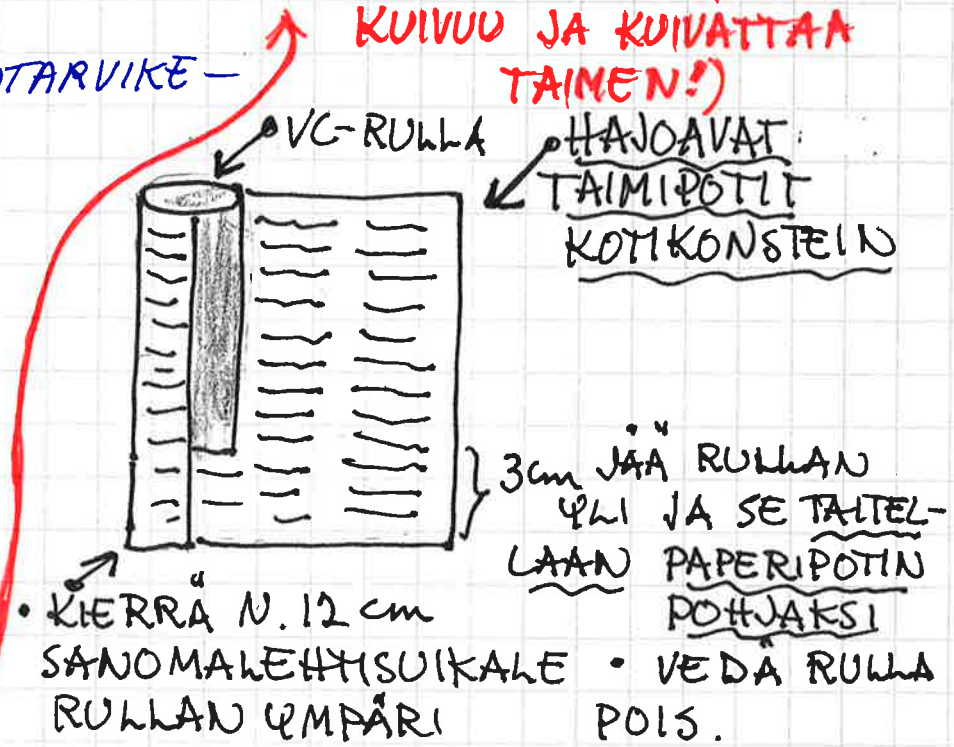 KUIVUU JA KUIVATTAA
TAIMEN!)
OTARVIKE-
VC-RULLA
HAJOAVAT
TAIMIPOTIT
KOTIKONSTEIN
3cm JÄÄ RULLAN
YLI JA SE TAITEL-
LAAN PAPERIPOTIN
POHJAKSI
• KIERRÄ N. 12 cm
SANOMALEHTISUIKALE
RULLAN YMPÄRI
• VEDÄ RULLA
POIS.